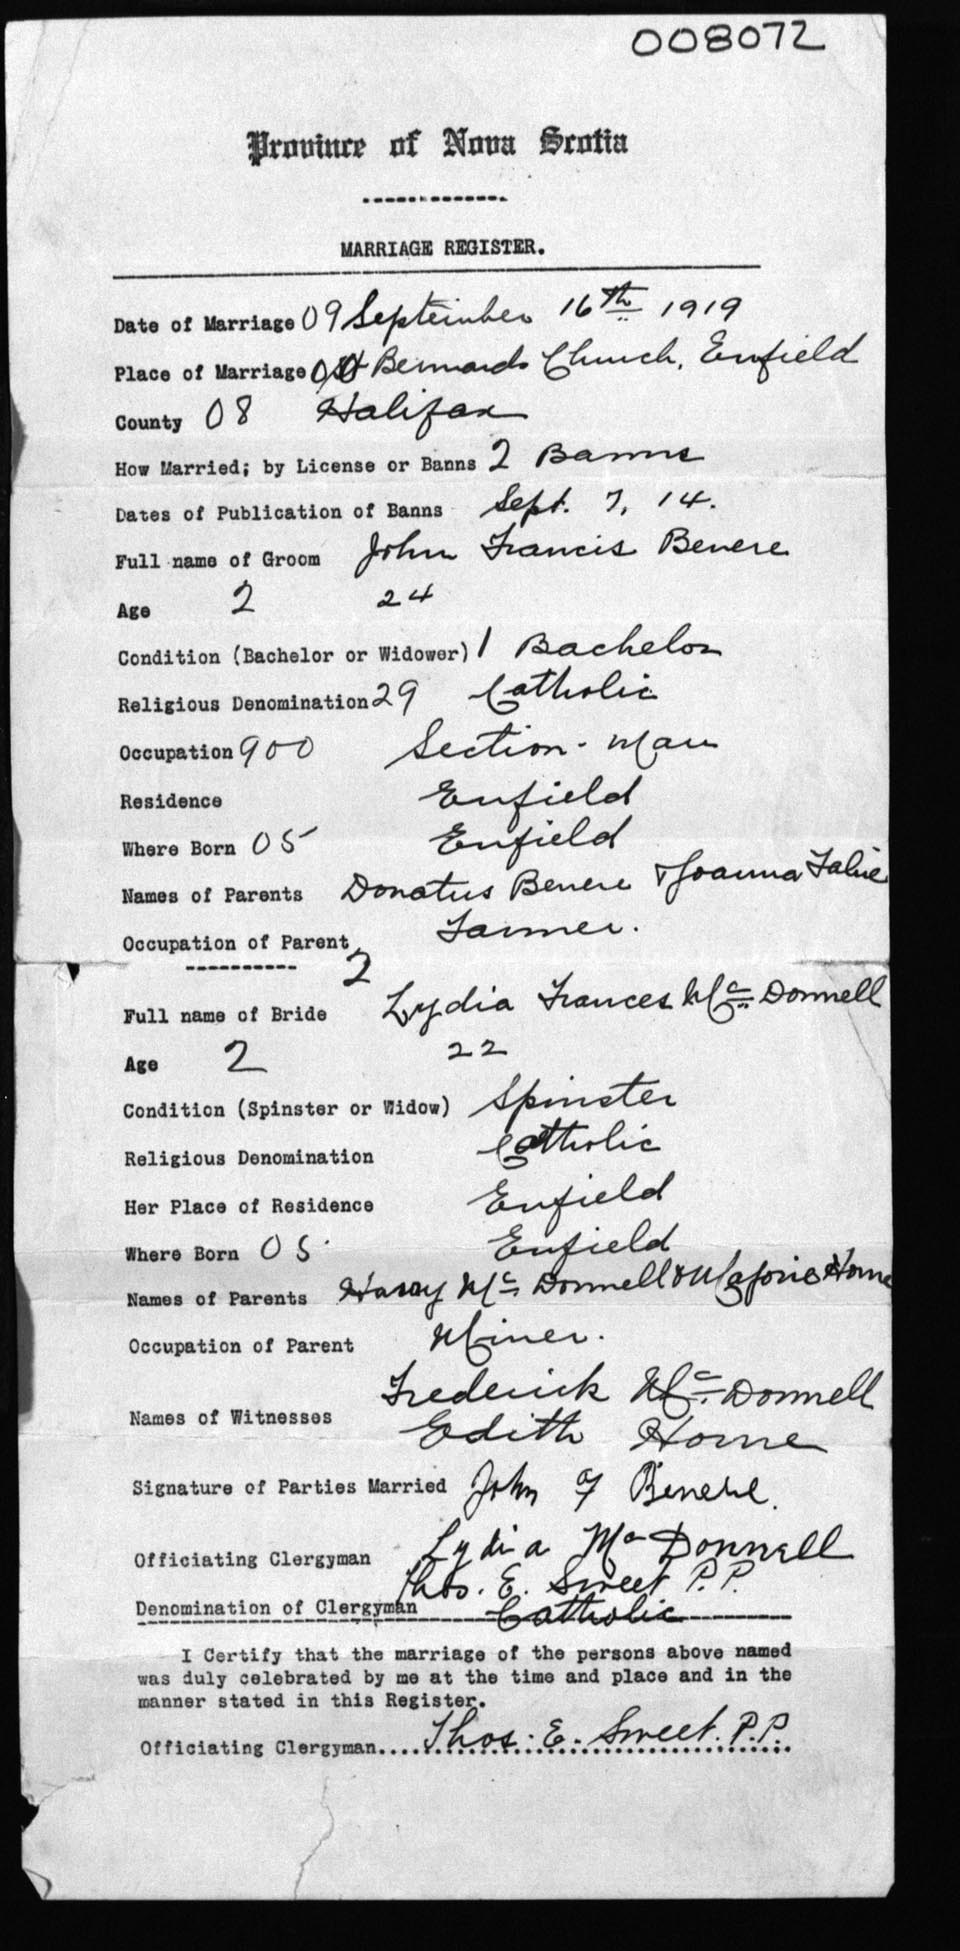 008072
Province of Nova Scotia
MARRIAGE REGISTER.
Date of Marriage 09 September 16th 1919
Place of Marriage St Bernards Church, Enfield
County 08 Halifax
How Married; by License or Banns 2 Banns
Dates of Publication of Banns Sept. 7, 14.
Full name of Groom John Francis Benere
Age 2 24
Condition (Bachelor or Widower) 1 Bachelor
Religious Denomination 29 Catholic
Occupation 900 Section-Man
Residence Enfield
Where Born 05 Enfield
Names of Parents Donatus Benere & Joanna
Occupation of Parent Farmer.
2
Full name of Bride Lydia Frances Mc Donnell
Age 2 22
Condition (Spinster or Widow) Spinster
Religious Denomination Catholic
Her Place of Residence Enfield
Where Born 05 Enfield
Names of Parents Harry Mc Donnell & Horne
Occupation of Parent Miner.
Frederick Mc Donnell
Names of Witnesses
Edith Horne
Signature of Parties Married John F
Lydia Mc Donnell
Officiating Clergyman Thos. E. Sweet P.P.
Denomination of Clergyman Catholic
I Certify that the marriage of the persons above named
was duly celebrated by me at the time and place and in the
manner stated in this Register.
Officiating Clergyman.... Thos. E. Sweet. P.P.